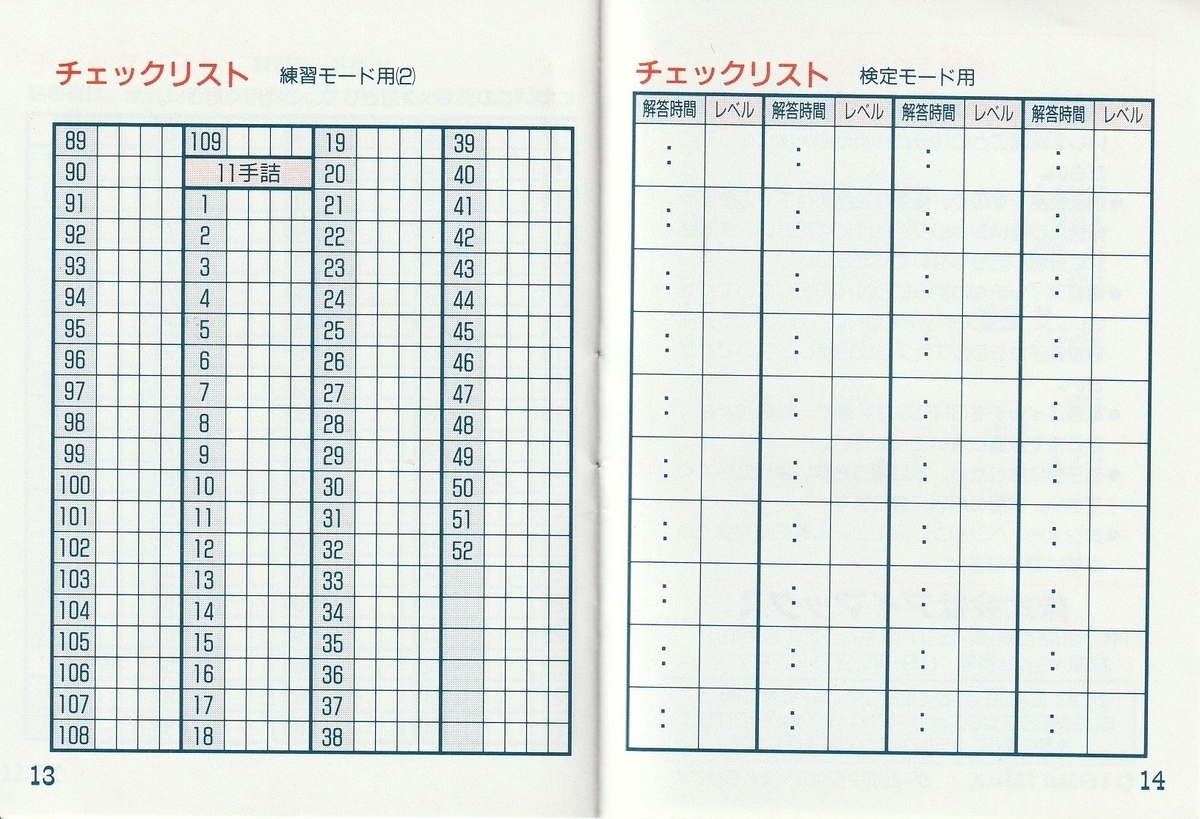 チェックリスト 練習モード用(2)
89 109 19 39
90 11手詰 20 40
91 1 21 41
92 2 22 42
93 3 23 43
94 4 24 44
95 5 25 45
96 6 26 46
97 7 27 47
98 8 28 48
99 9 29 49
100 10 30 50
101 11 31 51
102 12 32 52
103 13 33
104 14 34
105 15 35
106 16 36
107 17 37
108 18 38
13
チェックリスト 検定モード用
解答時間 レベル 解答時間 レベル 解答時間 レベル 解答時間 レベル
: : : :
: : : :
: : : :
: : : :
: : : :
: : : :
: : : :
: : : :
: : : :
: : : :
14